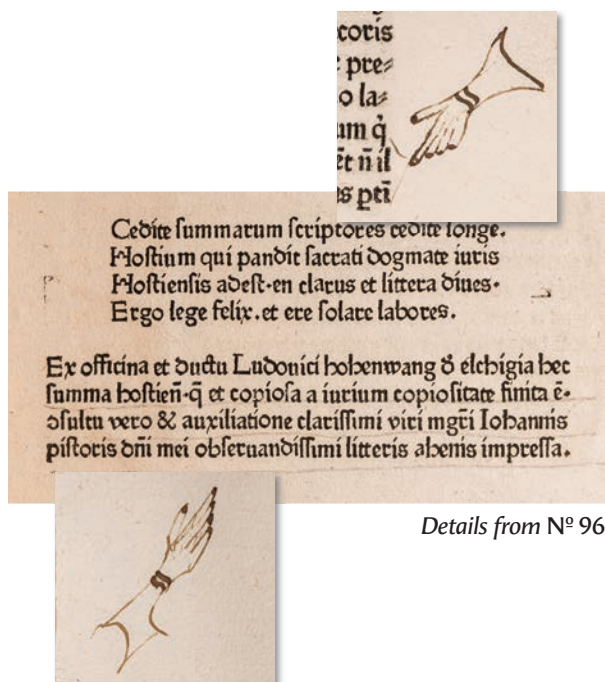 coris
pre⸗
o la⸗
um q̇
ēt n̄ il
us ptī
Cedite ſummarum ſcriptores cedite longe.
Hoſtium qui pandit ſacrati dogmate iuris
Hoſtienſis adeſt·en clarus et littera diues·
Ergo lege felix.et ere ſolare labores.
Ex officina et ductu Ludouici hohenwang đ elchigia hec
ſumma hoſtien̄·q̄ et copioſa a iurium copioſitate finita ē·
ↄſultu vero & auxiliatione clariſſimi viri mgr̄i Iohannis
piſtoris dn̄i mei obſeruandiſſimi litteris ahenis impreſſa.
Details from Nº 96